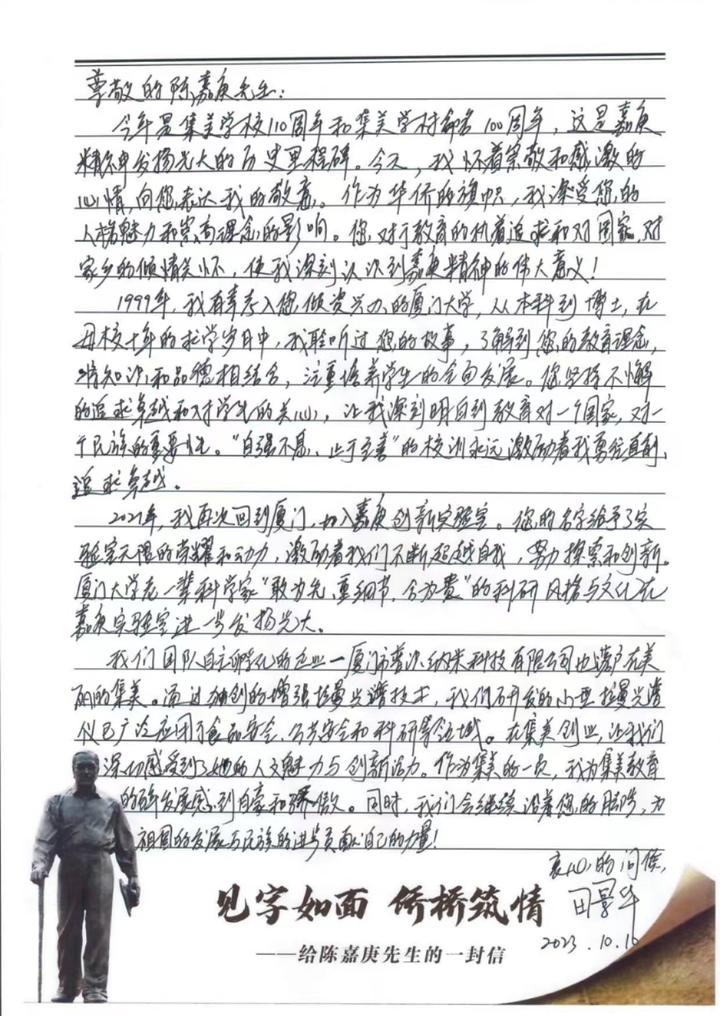 尊敬的陈嘉庚先生:
今年是集美学校110周年和集美学村命名100周年,这是嘉庚
精神发扬光大的历史里程碑。今天,我怀着崇敬和感激的
心情,向您表达我的敬意。作为华侨的旗帜,我深受您的
人格魅力和崇高理念的影响。您对于教育的执着追求和对国家、对
家乡的倾情关怀,使我深刻认识到嘉庚精神的伟大意义!
1999年,我有幸考入您倾资兴办的厦门大学,从本科到博士,在
母校十年的求学岁月中,我聆听过您的故事,了解到您的教育理念,
将知识和品德相结合,注重培养学生的全面发展。您坚持不懈
的追求卓越和对学生的关心,让我深刻明白到教育对一个国家,对一
个民族的重要性。“自强不息、止于至善”的校训永远激励着我勇往直前,
追求卓越。
2021年,我再次回到厦门,加入嘉庚创新实验室。您的名字给予了实
验室无限的荣耀和动力,激励着我们不断超越自我,努力探索和创新。
厦门大学老一辈科学家“敢为先、重细节、合为贵”的科研风格与文化在
嘉庚实验室进一步发扬光大。
我们团队自主孵化的企业—厦门市普识纳米科技有限公司也落户在美
丽的集美。通过独创的增强拉曼光谱技术,我们研发的小型拉曼光谱
仪已广泛应用于食品安全、公共安全和科研等领域。在集美创业,让我们
深切感受到了她的人文魅力与创新活力。作为集美的一员,我为集美教育
的蓬勃发展感到自豪和骄傲。同时,我们会继续沿着您的脚步,为
祖国的发展与民族的进步贡献自己的力量!
衷心的问候,
田景华
2023.10.10
见字如面 侨桥筑情
——给陈嘉庚先生的一封信